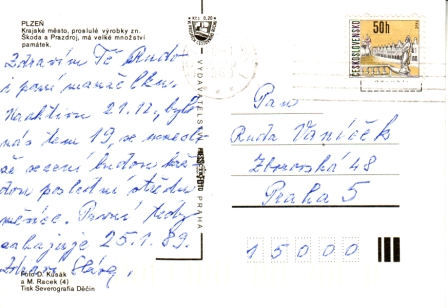 PLZEŇ
Krajské město, proslulé výrobky zn.
Škoda a Prazdroj, má velké množství
památek.
Zdravím Tě Rudo
i paní manželku.
Na aktivu 21.12. bylo
nás tam 19, se
že sezení budou kaž-
dou poslední středu
měsíce. První tedy
zahajuje 25.1.89.
Zdraví Sláva.
Foto D. Kusák
a M. Racek (4)
Tisk Severografia Děčín
Kčs 0,20
VYDAVATELSTVÍ
PRAHA
ČESKOSLOVENSKO
50h
Pan
Ruda Vaníček
Zborovská 48
Praha 5
15000